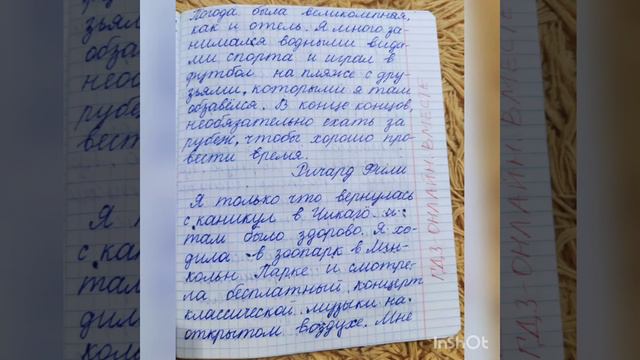 Погода была великолепная,
как и отель. Я много за-
нимался водными вида-
ми спорта и играл в
футбол на пляже с дру-
зьями, которыми я там
обзавёлся. В конце концов,
необязательно ехать за
рубеж, чтобы хорошо про-
вести время.
Ричард Фили
Я только что вернулась
с каникул в Чикаго и
там было здорово. Я хо-
дила в зоопарк в Лин-
кольн Парке и смотре-
ла бесплатный концерт
классической музыки на
открытом воздухе. Мне
ГДЗ-ОНЛАЙН ВМЕСТЕ
InShot